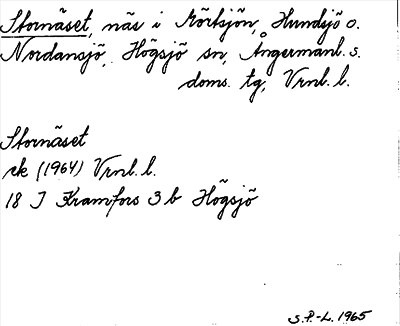 Stornäset, näs i Mörtsjön, Hundsjö o.
Nordansjö, Högsjö sn, Ångermanl. s.
doms. tg, Vrnl. l.
Stornäset
rk (1964) Vrnl. l.
18 J Kramfors 3 b Högsjö
S.P.-L. 1965